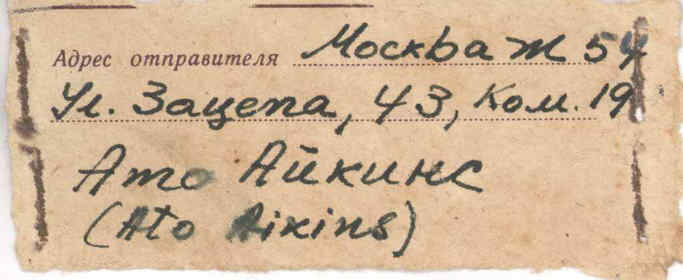 Адрес отправителя Москва Ж 54
Ул. Зацепа, 43, Ком. 19
Ато Айкинс
(Ato Aikins)